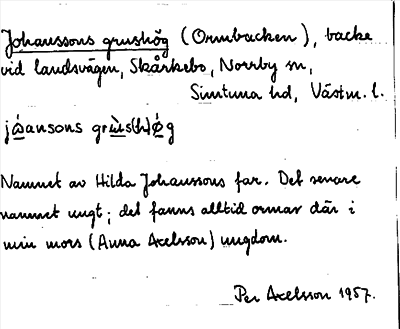 Johanssons grushög (Ormbacken), backe
vid landsvägen, Skårkebo, Norrby sn,
Simtuna hd, Västm. l.
jåansons grùs(h)ǿg
Namnet av Hilda Johanssons far. Det senare
namnet ungt; det fanns alltid ormar där i
min mors (Anna Axelsson) ungdom.
Per Axelsson 1957.